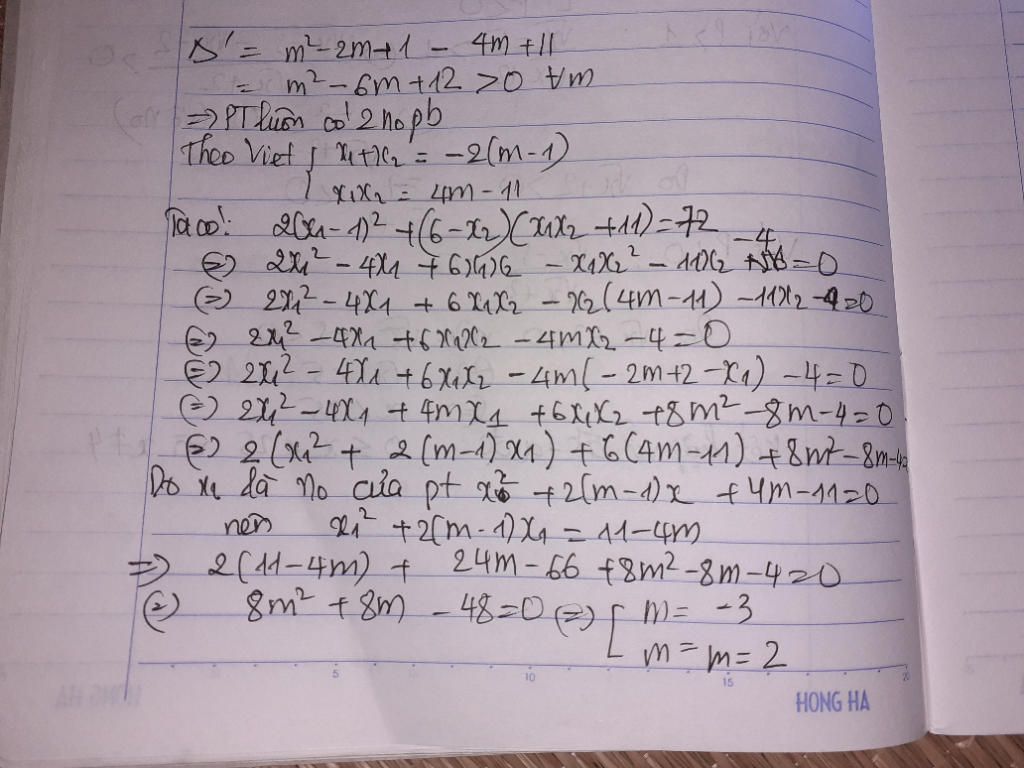 Δ' = m² - 2m + 1 - 4m + 11
= m² - 6m + 12 > 0 ∀m
⇒ PT luôn có 2 no pb
Theo Viet { x₁ + x₂ = -2(m-1)
x₁x₂ = 4m - 11
Ta có: 2(x₁ - 1)² + (6 - x₂)(x₁x₂ + 11) = 72
⇔ 2x₁² - 4x₁ + 6x₁x₂ - x₁x₂² - 11x₂ - 4 = 0
⇔ 2x₁² - 4x₁ + 6x₁x₂ - x₂(4m - 11) - 11x₂ - 4 = 0
⇔ 2x₁² - 4x₁ + 6x₁x₂ - 4mx₂ - 4 = 0
⇔ 2x₁² - 4x₁ + 6x₁x₂ - 4m(-2m + 2 - x₁) - 4 = 0
⇔ 2x₁² - 4x₁ + 4mx₁ + 6x₁x₂ + 8m² - 8m - 4 = 0
⇔ 2(x₁² + 2(m-1)x₁) + 6(4m - 11) + 8m² - 8m - 4 =
Do x₁ là no của pt x² + 2(m-1)x + 4m - 11 = 0
nên x₁² + 2(m-1)x₁ = 11 - 4m
⇒ 2(11 - 4m) + 24m - 66 + 8m² - 8m - 4 = 0
⇔ 8m² + 8m - 48 = 0 ⇔ [ m = -3
m = m = 2
5 10 15 20
HONG HA